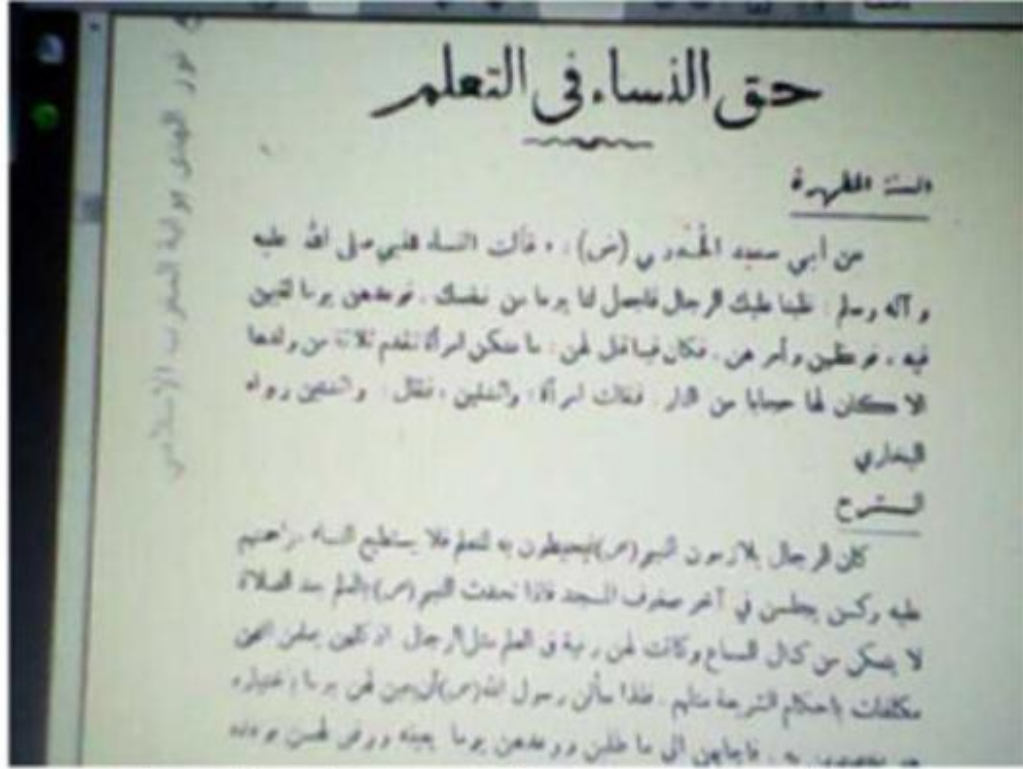 حق النساء في التعلم
السنة المطهرة
عن أبي سعيد الخدري (ض) . « قالت النساء للنبي صلى الله عليه
وآله وسلم : غلبنا عليك الرجال فاجعل لنا يوما من نفسك . فوعدهن يوما لقيهن
فيه ، فوعظهن وأمرهن . فكان فيما قال لهن : ما منكن امرأة تقدم ثلاثة من ولدها
الا كان لها حجابا من النار . فقالت امرأة : واثنين ، فقال : واثنين رواه
البخاري
الشرح
كان الرجال يلازمون النبي (ص) فيحيطون به للتعلم فلا يستطيع النساء مزاحمتهم
عليه وكن يجلسن في آخر صفوف المسجد فاذا تحدث النبي (ص) بالعلم بعد الصلاة
لا يتمكن من كمال السماع وكانت لهن رغبة في العلم مثل الرجال اذ كلهن يعلمن انهن
مكلفات باحكام الشريعة مثلهم . فلذا سألن رسول الله (ص) أن يعين لهن يوما باختياره
به . فاجابهن الى ما طلبن ووعدهن يوما بعينه ووفى لهن بوعده
نور الهدى بوابة المغرب الإسلامي